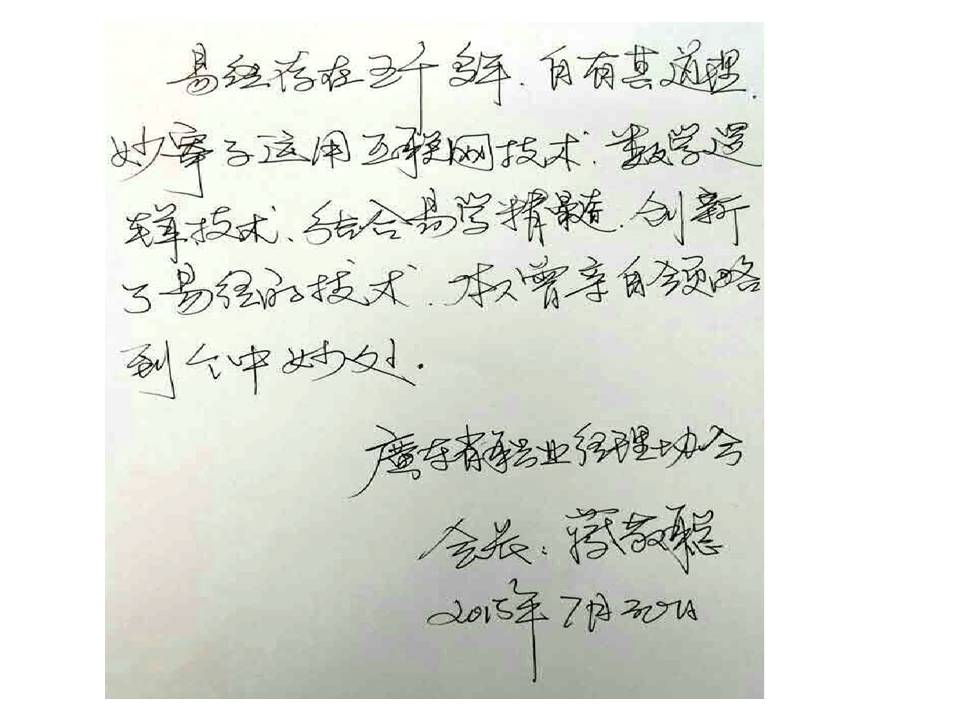 易经存在五千多年.自有其道理.
妙宰子运用互联网技术.数学逻
辑技术、结合易学精髓.创新
了易经的技术.本人曾亲自领略
到个中妙处.
廣东省职业经理协会
会长:敬聪
2015年7月30日